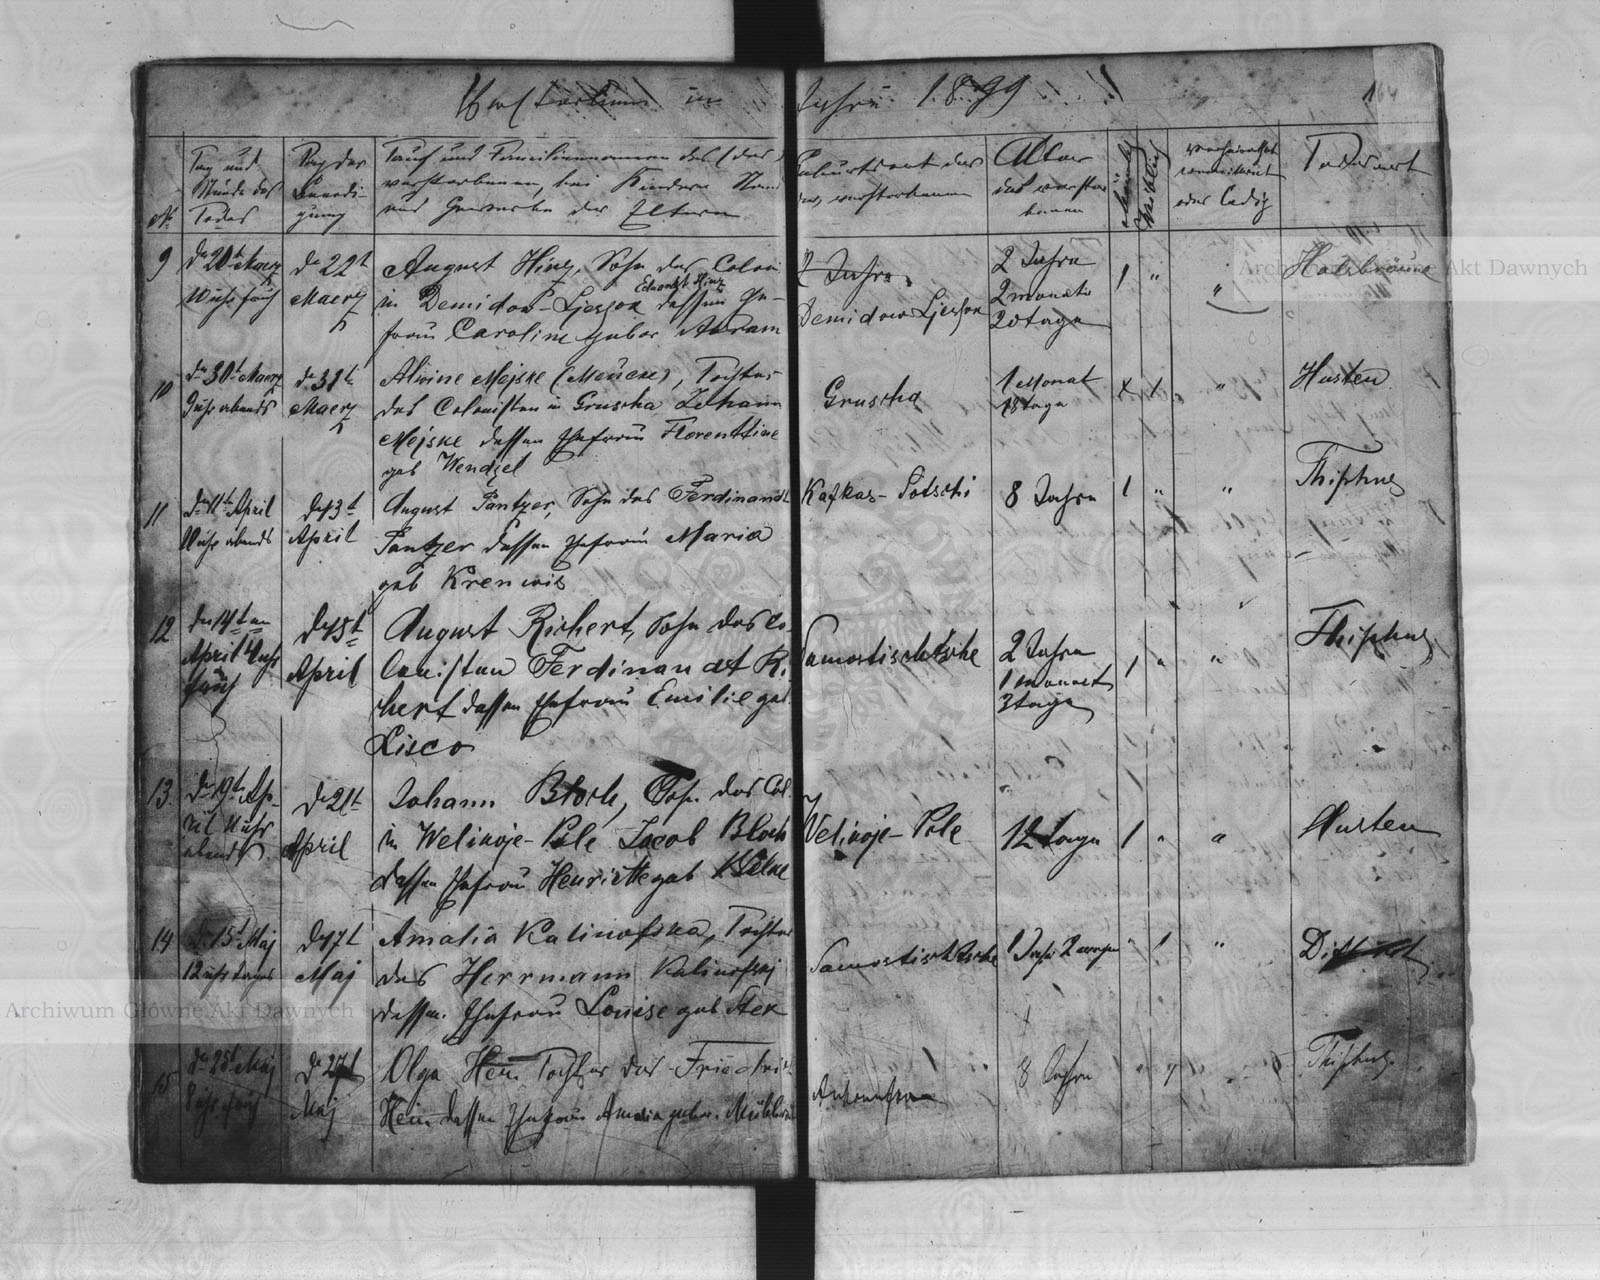 Verstorbene im Jahre 1899
164
№
Tag und Stunde des Todes
Tag der Beerdigung
Tauf und Familiennamen des (der)
verstorbenen, bei Kindern Stand
und Gewerbe der Eltern
Geburtsort des
verstorbenen
Alter
des verstorbenen
männlich
weiblich
verheirathet
oder Ledig
Todesart
9
d 20t Maerz
Uhr früh
d 22t
Maerz
August Hinz, Sohn des Coloni
in Demidow-Ljesson Eduardt Hinz dessen Ehe-
frau Caroline geber Abram
Demidow Ljesson
2 Jahre
2 monate
20 tage
1 "
"
Halsbräune
10
d 30t Maerz
9 uhr abends
d 31t
Maerz
Alwine Mejske (Meucke), Tochter
des Colonisten in Gruscha Johann
Mejske dessen Ehefrau Florenttine
geb Wendzel
Gruscha
1 Monat
18 tage
"
Husten
11
d 11t April
Uhr abends
d 13t
April
August Pantzer, Sohn des Ferdinandt
Pantzer dessen Ehefrau Maria
geb Krenwis
Kafkas-Sotschi
8 Jahre
1 "
"
Thiphus
12
den 14ten
April Uhr
früh
d 15t
April
August Richert, Sohn des Co-
lonisten Ferdinandt Ri-
chert dessen Ehefrau Emilie geb
Lisco
Samostischtsche
2 Jahre
1 monat
3 tage
1 "
"
Thiphus
13.
d 19t Ap-
ril Uhr
abends
d 21t
April
Johann Bloch, Sohn des Col.
in Welikoje-Pole Jacob Bloch
dessen Ehefrau Henriette geb
Welikoje-Pole
12 tage
1 "
"
Husten
14
d 15t Maj
12 uhr tages
d 17t
Maj
Amalia Kalinofska, Tochter
des Herrmann Kalinofskj
dessen Ehefrau Louise geb Stek
Samostischtsche
1 Jahr
" 1
"
15
d 25t Maj
8 uhr früh
d 27t
Maj
Olga Hein Tochter des Friedrich
Hein dessen Ehefrau Amalia geber.
8 Jahre
Thiphus
Archiwum Główne Akt Dawnych
Archiwum Główne Akt Dawnych